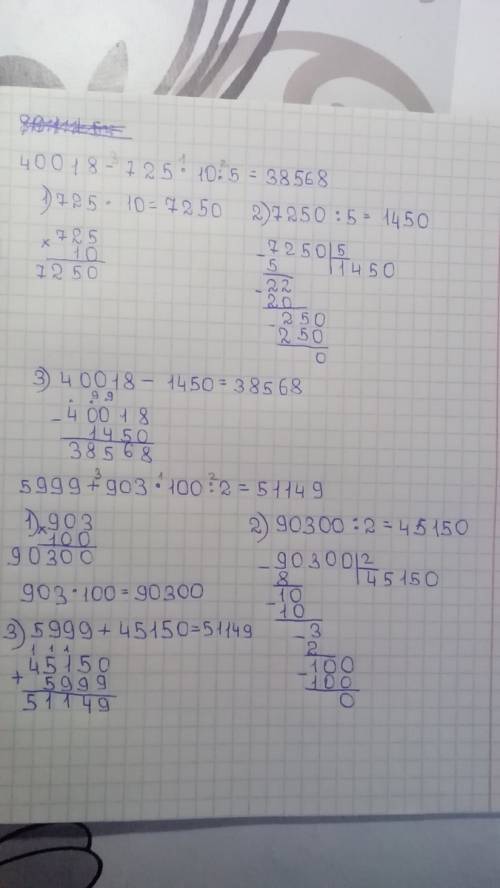 40018 - 725 · 10 : 5 = 38568
3 1 2
1) 725 · 10 = 7250
× 725
10
7250
2) 7250 : 5 = 1450
- 7250 | 5
5 | 1450
- 22
20
- 250
250
0
3) 40018 - 1450 = 38568
. . 9 9
- 40018
1450
38568
5999 + 903 · 100 : 2 = 51149
3 1 2
1) × 903
100
90300
903 · 100 = 90300
2) 90300 : 2 = 45150
- 90300 | 2
8 | 45150
- 10
10
- 3
2
- 100
100
0
3) 5999 + 45150 = 51149
1 1 1
+ 45150
5999
51149